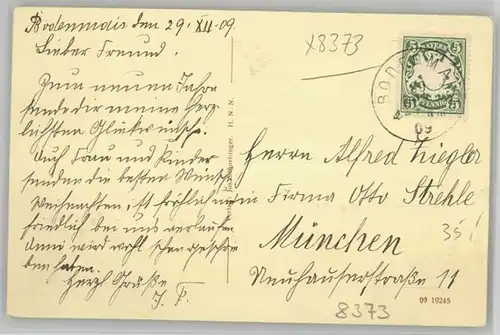 Bodenmais den 29. XII. 09.
Lieber Freund.
Zum neuen Jahre
sende dir meine herz
lichsten Glückwünsche.
Auch Frau und Kinder
senden die besten Wünsche
Weihnachten, ist fröhlich u
friedlich bei uns verlaufen
Anni wird wohl schon geschrie
ben haben.
Herzl Grüße
J. P.
X8373
BAYERN
5 5
5 PFENNIG 5
BODENMAIS
09
Herrn Alfred Ziegler
in Firma Otto Strehle
München
Neuhauserstraße 11
35
8373
09 19245
H. N. N.